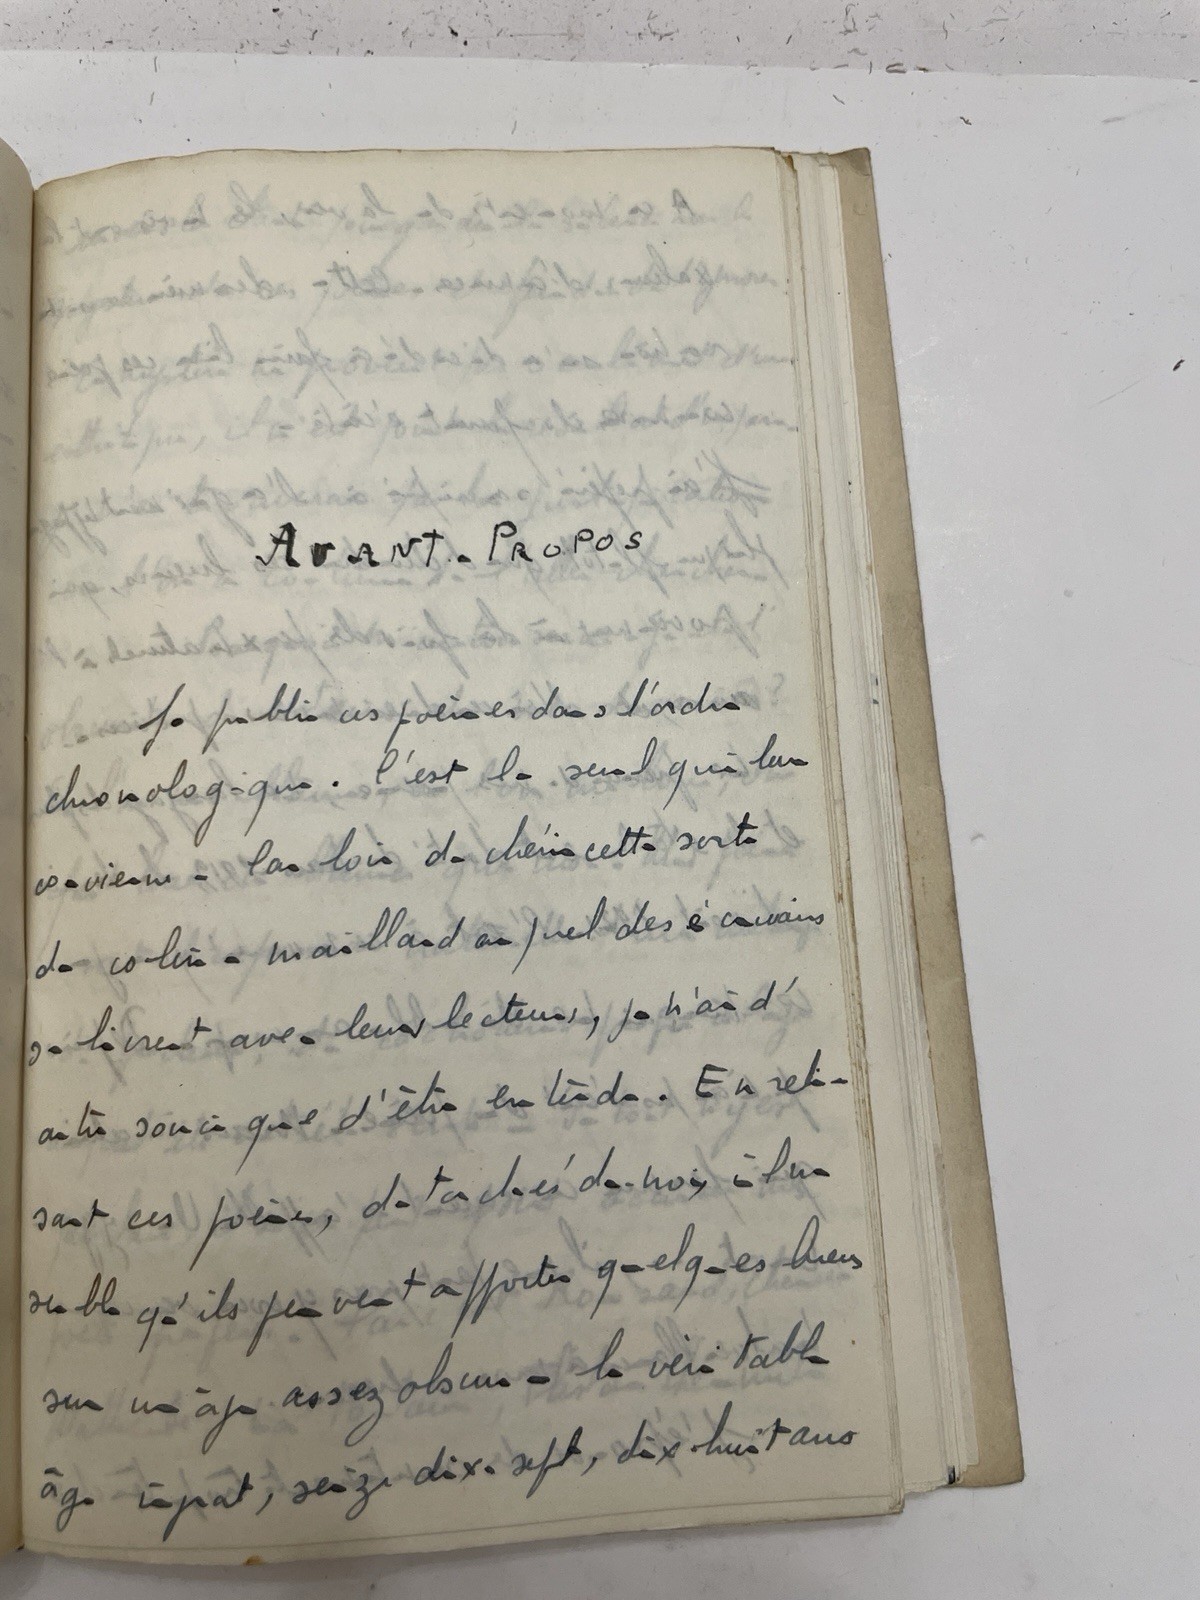 AVANT-PROPOS
Je publie ces poèmes dans l'ordre
chronologique. C'est le seul qui leur
convienne. Loin de chérir cette sorte
de colin-maillard auquel des écrivains
se livrent avec leurs lecteurs, je n'ai d'
autre souci que d'être entendu. En reli-
sant ces poèmes, détachés de moi, il me
semble qu'ils peuvent apporter quelques lueurs
sur un âge assez obscur - le véritable
âge ingrat, seize dix-sept, dix-huit ans